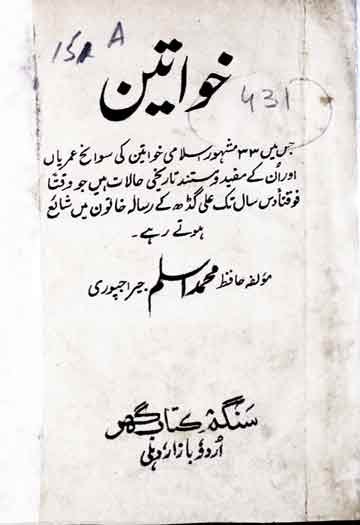 15A A
خواتین
431
جس میں ۳۳ مشہور اسلامی خواتین کی سوانح عمریاں
اور اُن کے مفید و مستند تاریخی حالات ہیں جو وقتاً
فوقتاً دس سال تک علی گڈھ کے رسالہ خاتون میں شائع
ہوتے رہے۔
مولفہ حافظ محمد اسلم جیراجپوری
سنگم کتاب گھر
اُردو بازار دہلی